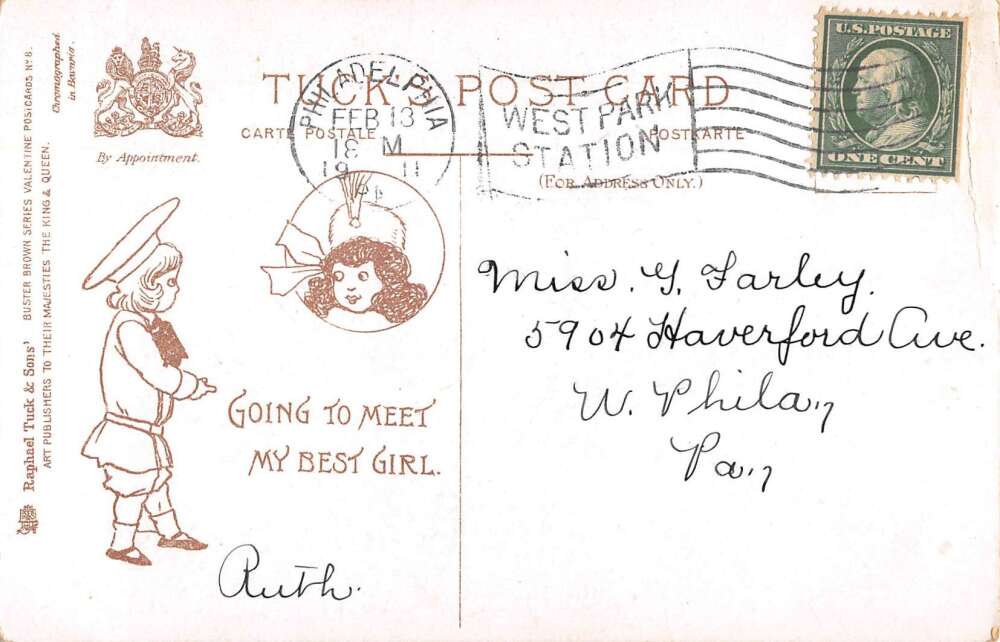 Raphael Tuck & Sons' BUSTER BROWN SERIES VALENTINE POSTCARDS Nº 8.
ART PUBLISHERS TO THEIR MAJESTIES THE KING & QUEEN.
Chromographed
in Bavaria.
By Appointment.
TUCK'S POST CARD
CARTE POSTALE POSTKARTE
(FOR ADDRESS ONLY.)
PHILADELPHIA
FEB 13
18 M
19 11
PA
WEST PARK
STATION
U.S. POSTAGE
ONE CENT
Miss. G. Farley.
5904 Haverford Ave.
W. Phila,
Pa,
GOING TO MEET
MY BEST GIRL.
Ruth.